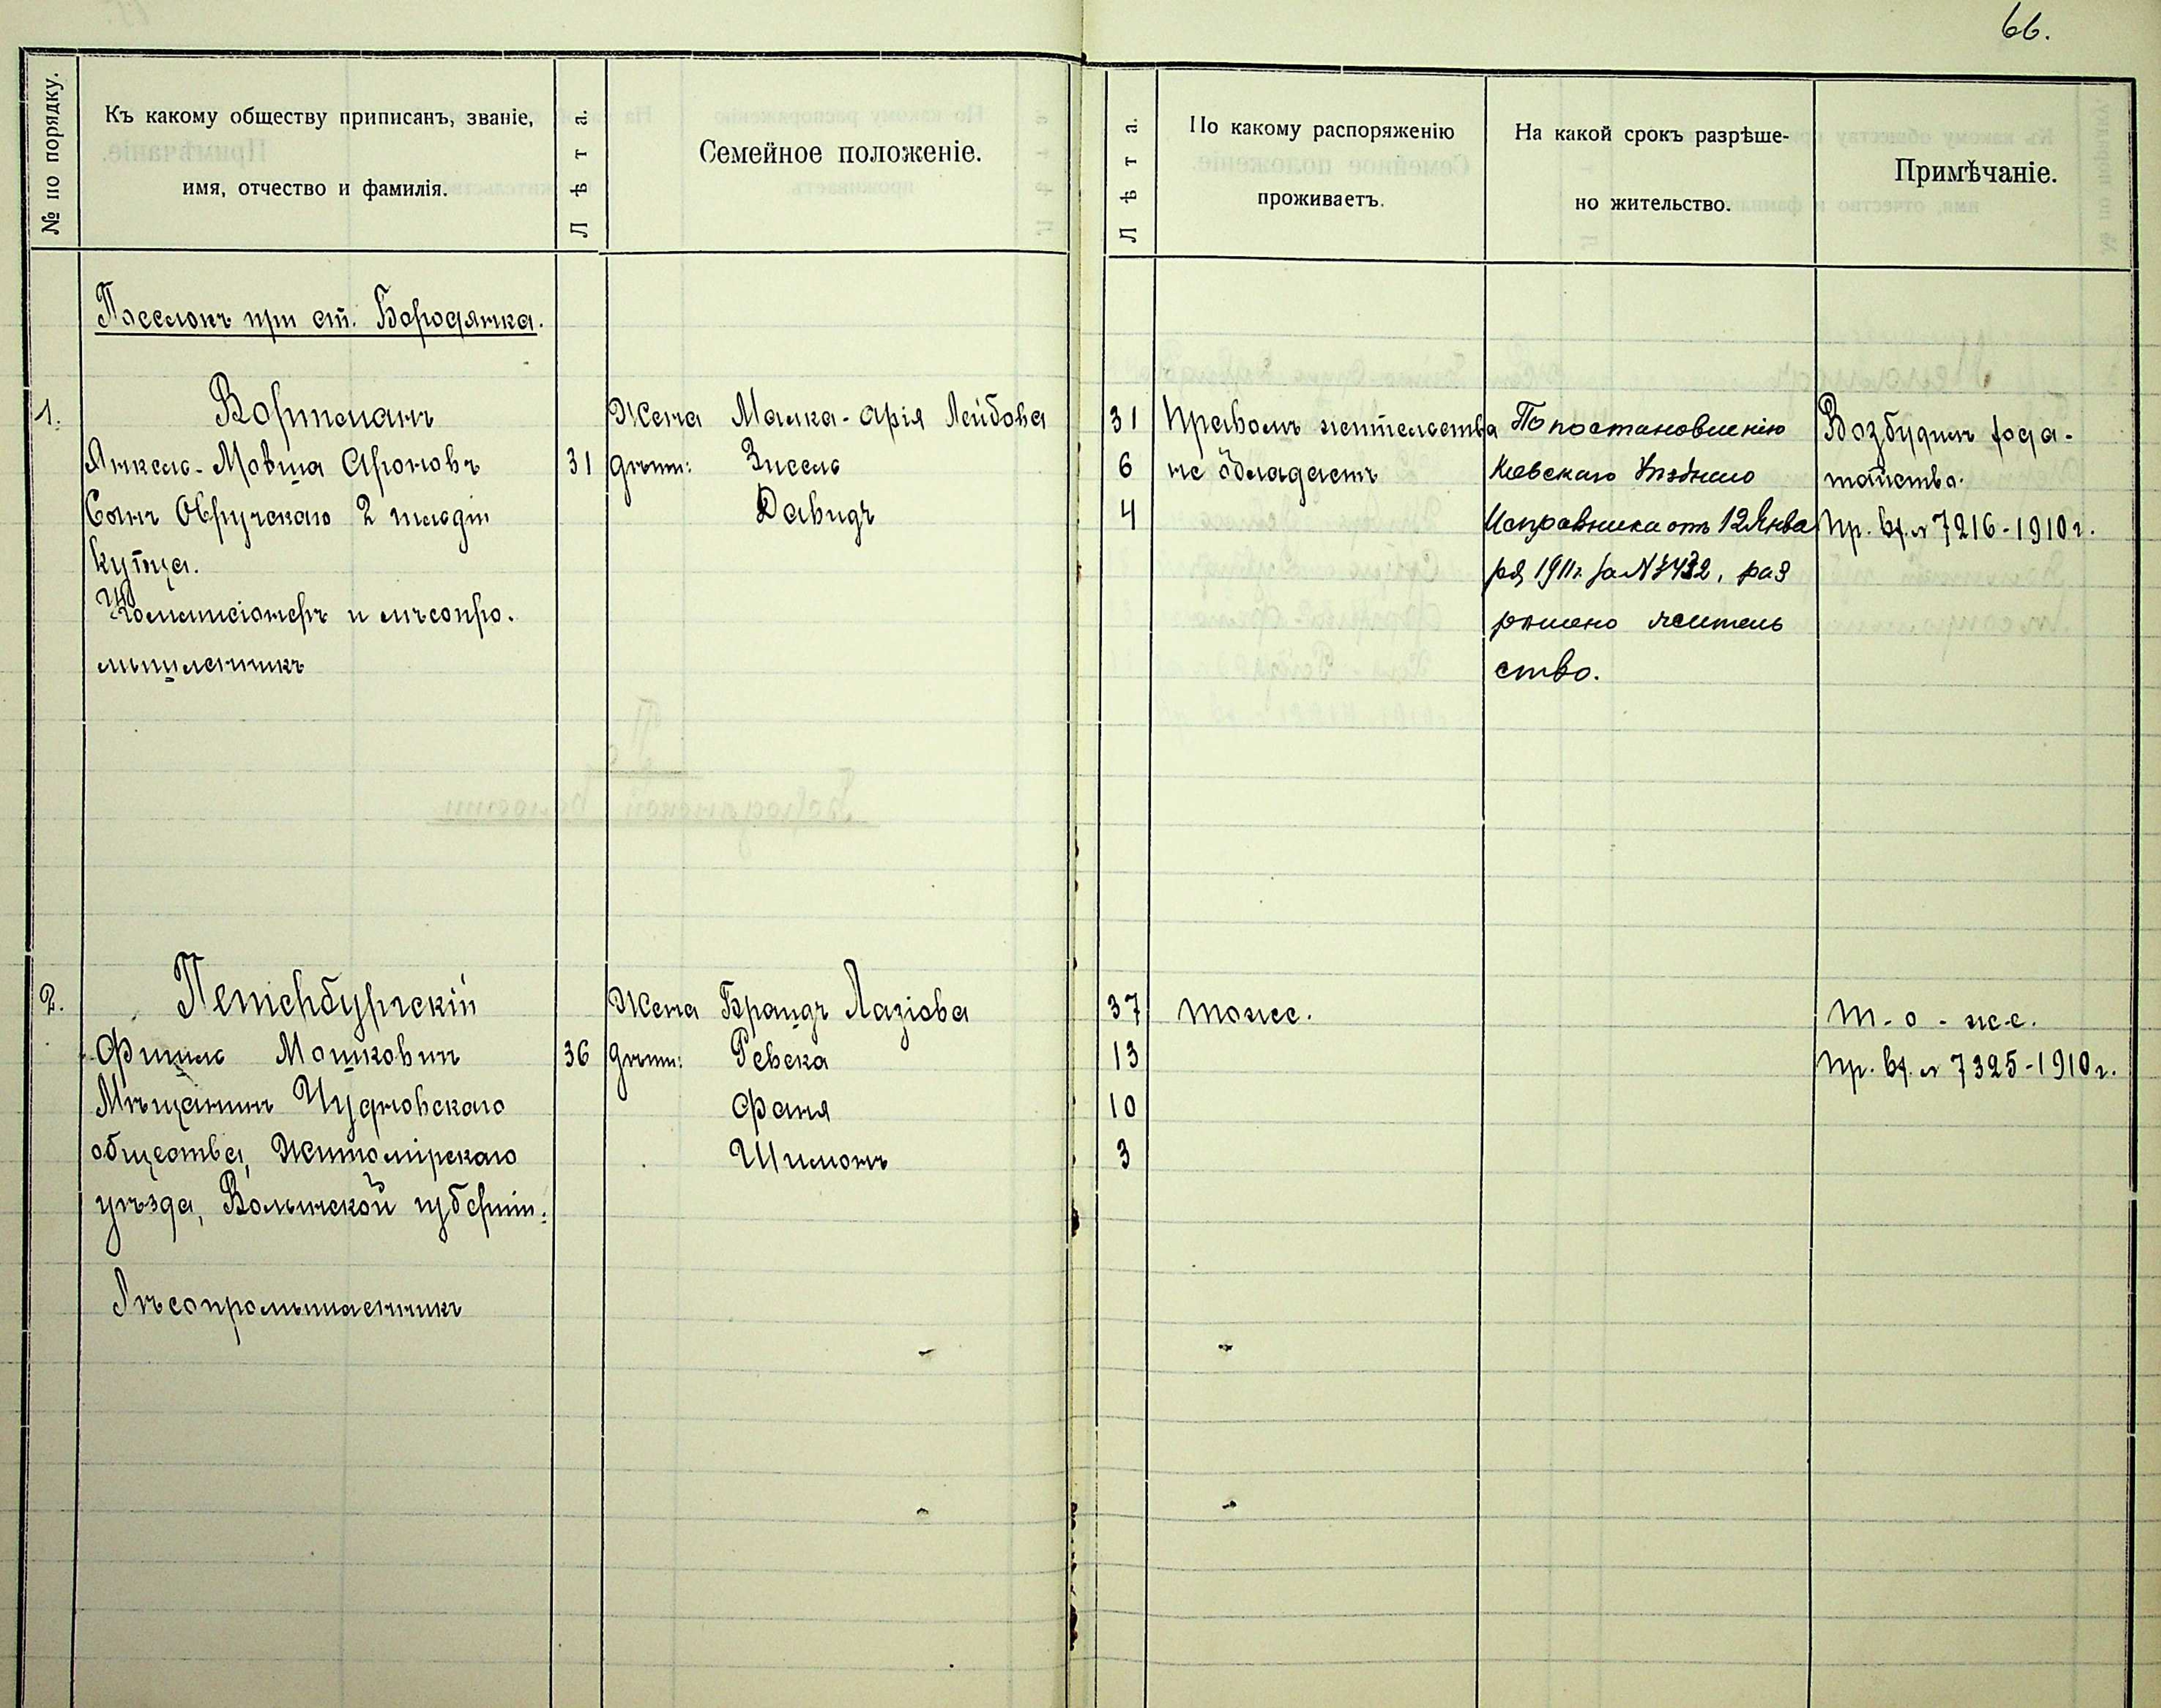 66.
№ по порядку.
Къ какому обществу приписанъ, званіе,
имя, отчество и фамилія.
Лѣта.
Семейное положеніе.
Лѣта.
По какому распоряженію
проживаетъ.
На какой срокъ разрѣше-
но жительство.
Примѣчаніе.
Поселокъ при ст. Бородянка.
1.
Вортманъ
Янкель-Мовша Ароновъ
31
Сынъ Овручскаго 2 гильдіи
купца.
Коммисіонеръ и лѣсопро-
мышленникъ
Жена Малка-Арія Лейбова
дѣти: Зисель
Давидъ
31
6
4
Правомъ жительства
не обладаетъ
По постановленію
Кіевскаго Уѣзднаго
Исправника отъ 12 Янва
ря 1911 г. за №
раз
рѣшено житель
ство.
Возбудилъ хода-
тайство.
Пр. вх. № 7216-1910 г.
2.
Петербургскій
Фишель Мошковичъ
36
Мѣщанинъ Чудновскаго
общества, Житомірскаго
уѣзда, Волынской губерніи.
Лѣсопромышленникъ
Жена Браидъ
дѣти: Ревека
Фаня
Шимонъ
37
13
10
3
тоже.
т-о-же.
Пр. вх. № 7325-1910 г.